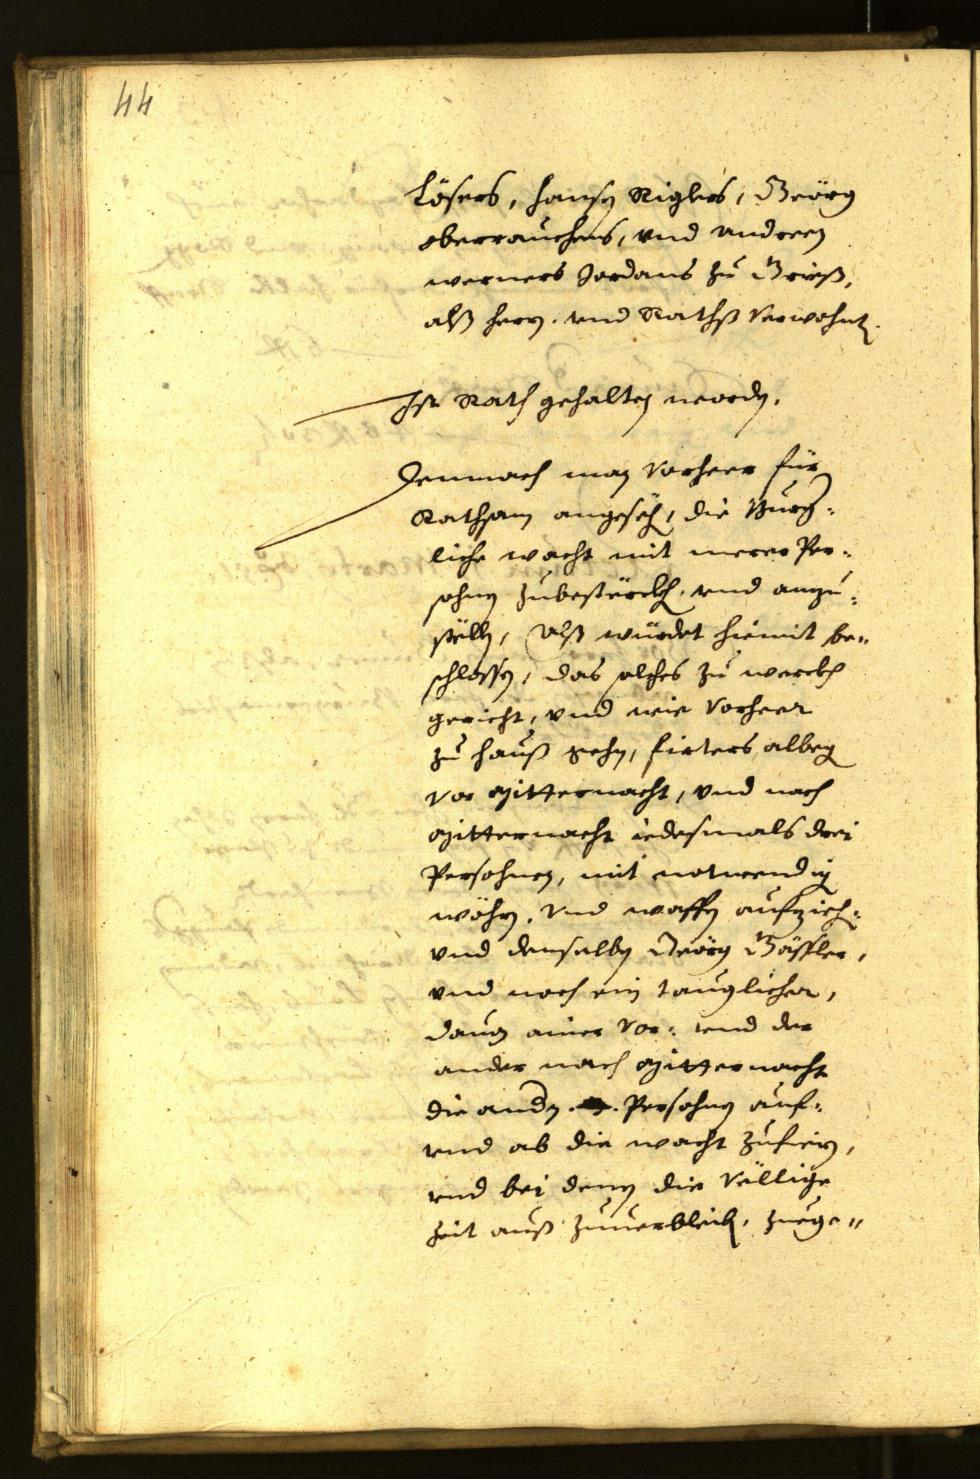 44
Lösers, Hansen Riglers, Geörg
oberrauchers, vnd Andreen
werners Jordans zu Grieß,
alß herrn. vnd Rathß Verwohnt.
Ist Rath gehalten worden.
Demnach man Vorheer für
Rathsam angesehen, die Burg-
liche wacht mit merer Per-
sohnen zubestärckhen. vnd anzu-
stellen, Alß würdet hiemit be-
schlossen, das solches zu werckh
gericht, vnd wie Vorheer
zu hauß gehn, firters alben
Vor Mitternacht, vnd nach
Mitternacht iedesmals drei
Persohnen, mit notwendig
wöhrn. vnd waffen aufziehen:
vnd denselben Geörg Gässler,
vnd noch ein tauglicher,
dauon ainer Vor: vnd der
ander nach Mitternacht
die andern Persohnen auf-
vnd ab die wacht zufiern,
vnd bei denen die Völlige
Zeit auß zuuerbleiben, zuege-